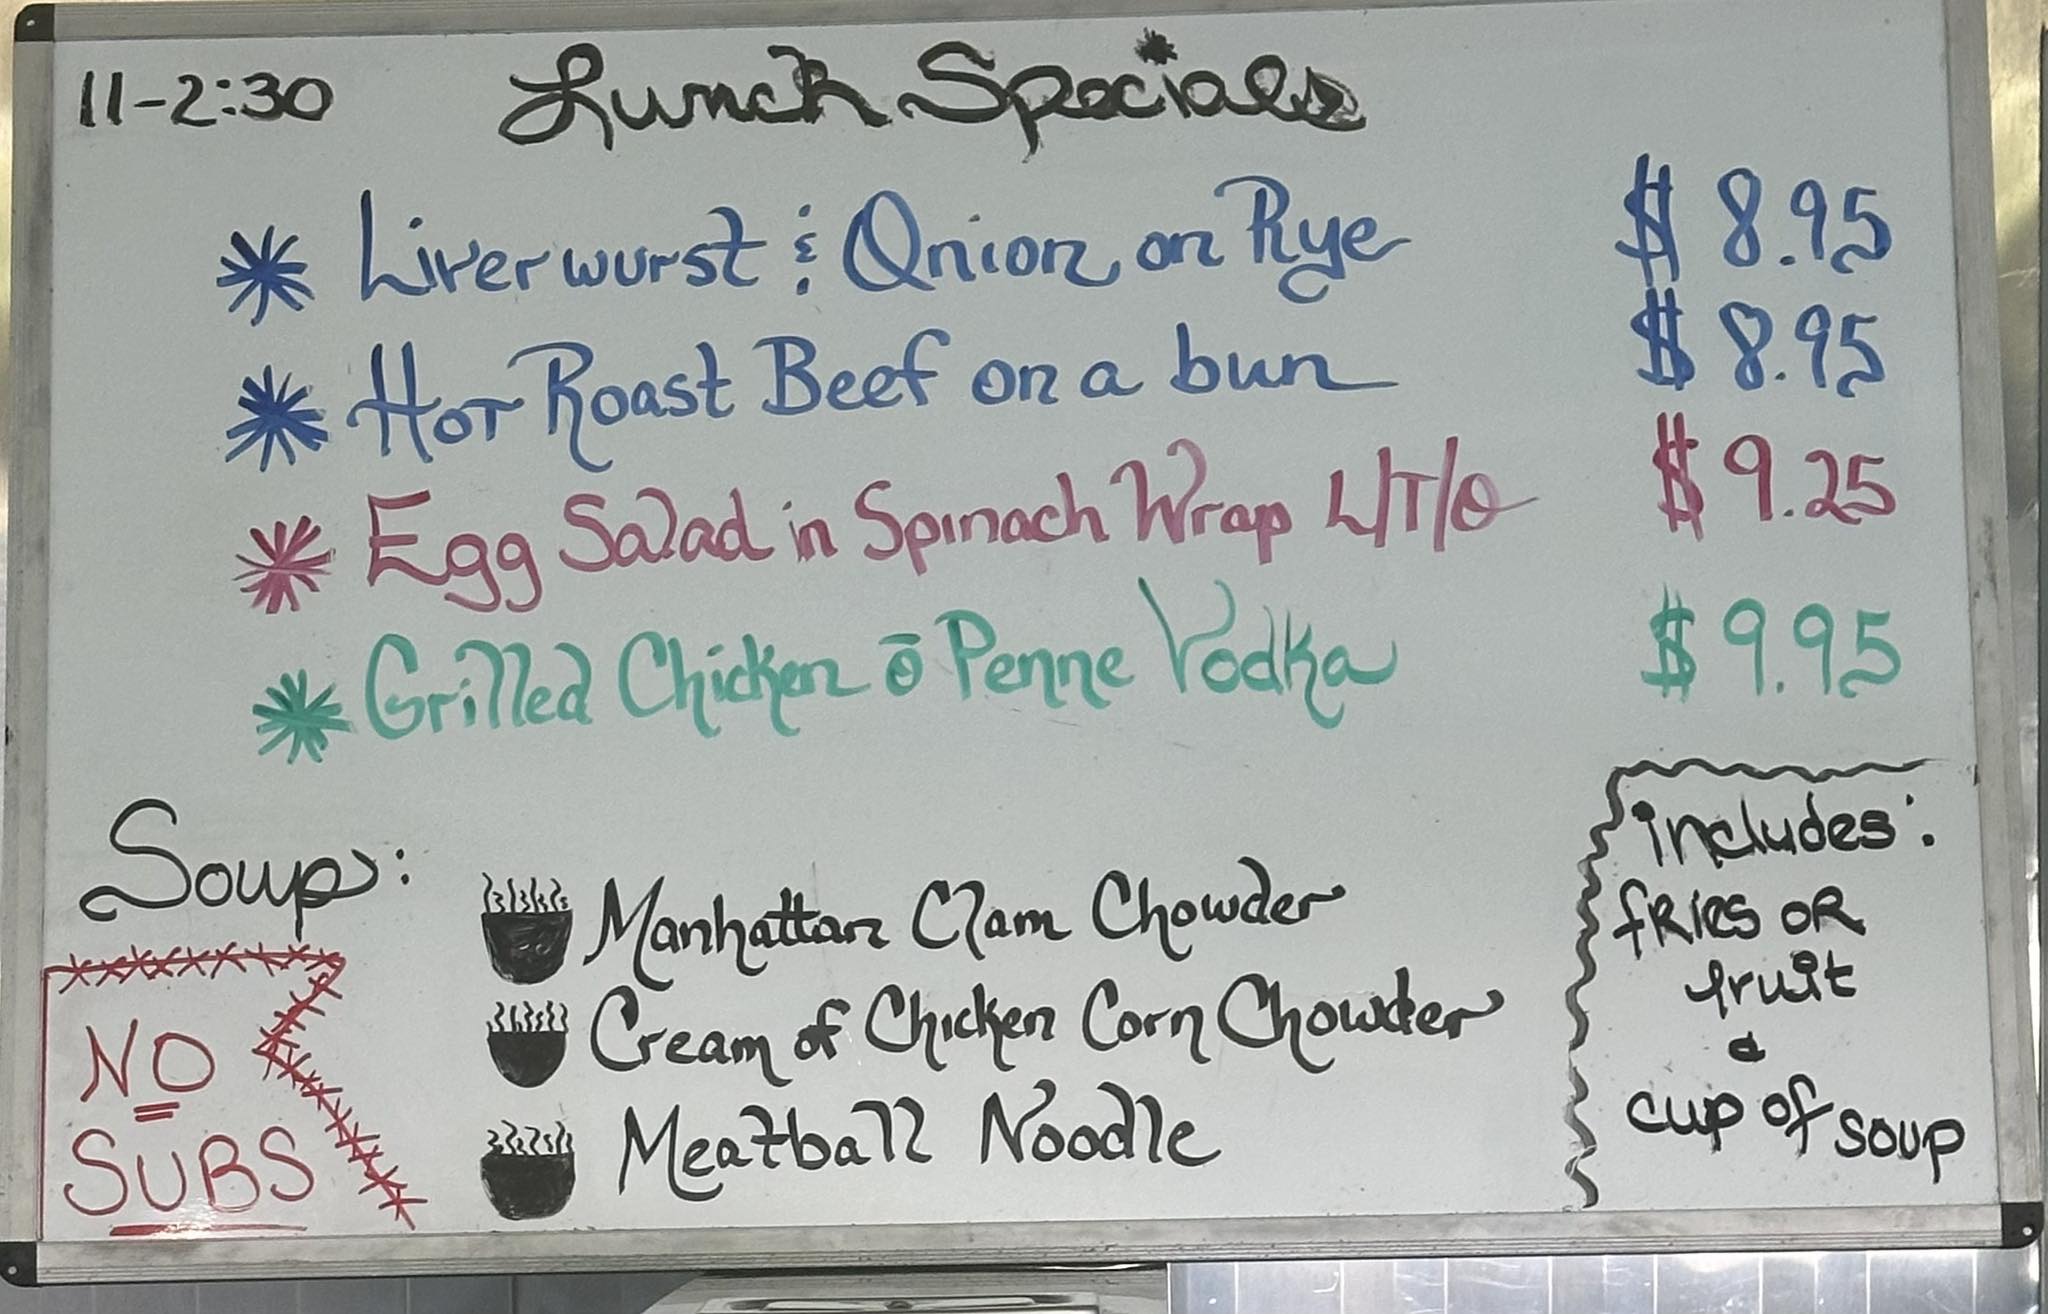 11-2:30 Lunch Specials
Liverwurst & Onion on Rye $ 8.95
Hot Roast Beef on a bun $ 8.95
Egg Salad in Spinach Wrap L/T/O $ 9.25
Grilled Chicken Penne Vodka $ 9.95
Soups:
Manhattan Clam Chowder
Cream of Chicken Corn Chowder
Meatball Noodle
NO
SUBS
includes:
fRies OR
fruit
&
cup of soup